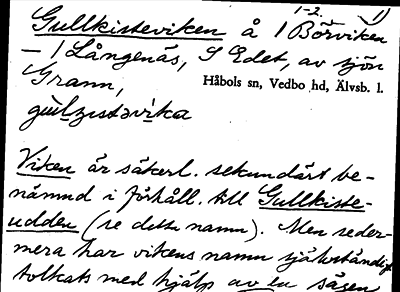 1-2. 1)
Gullkisteviken å 1 Börviken
– 1 Långenäs, S Edet, av sjön
Grann, Håbols sn, Vedbo hd, Älvsb. l.
Viken är säkerl. sekundärt be-
nämnd i förhåll. till Gullkiste-
udden (se detta namn). Men seder-
mera har vikens namn självständigt
tolkats med hjälp av en sägen